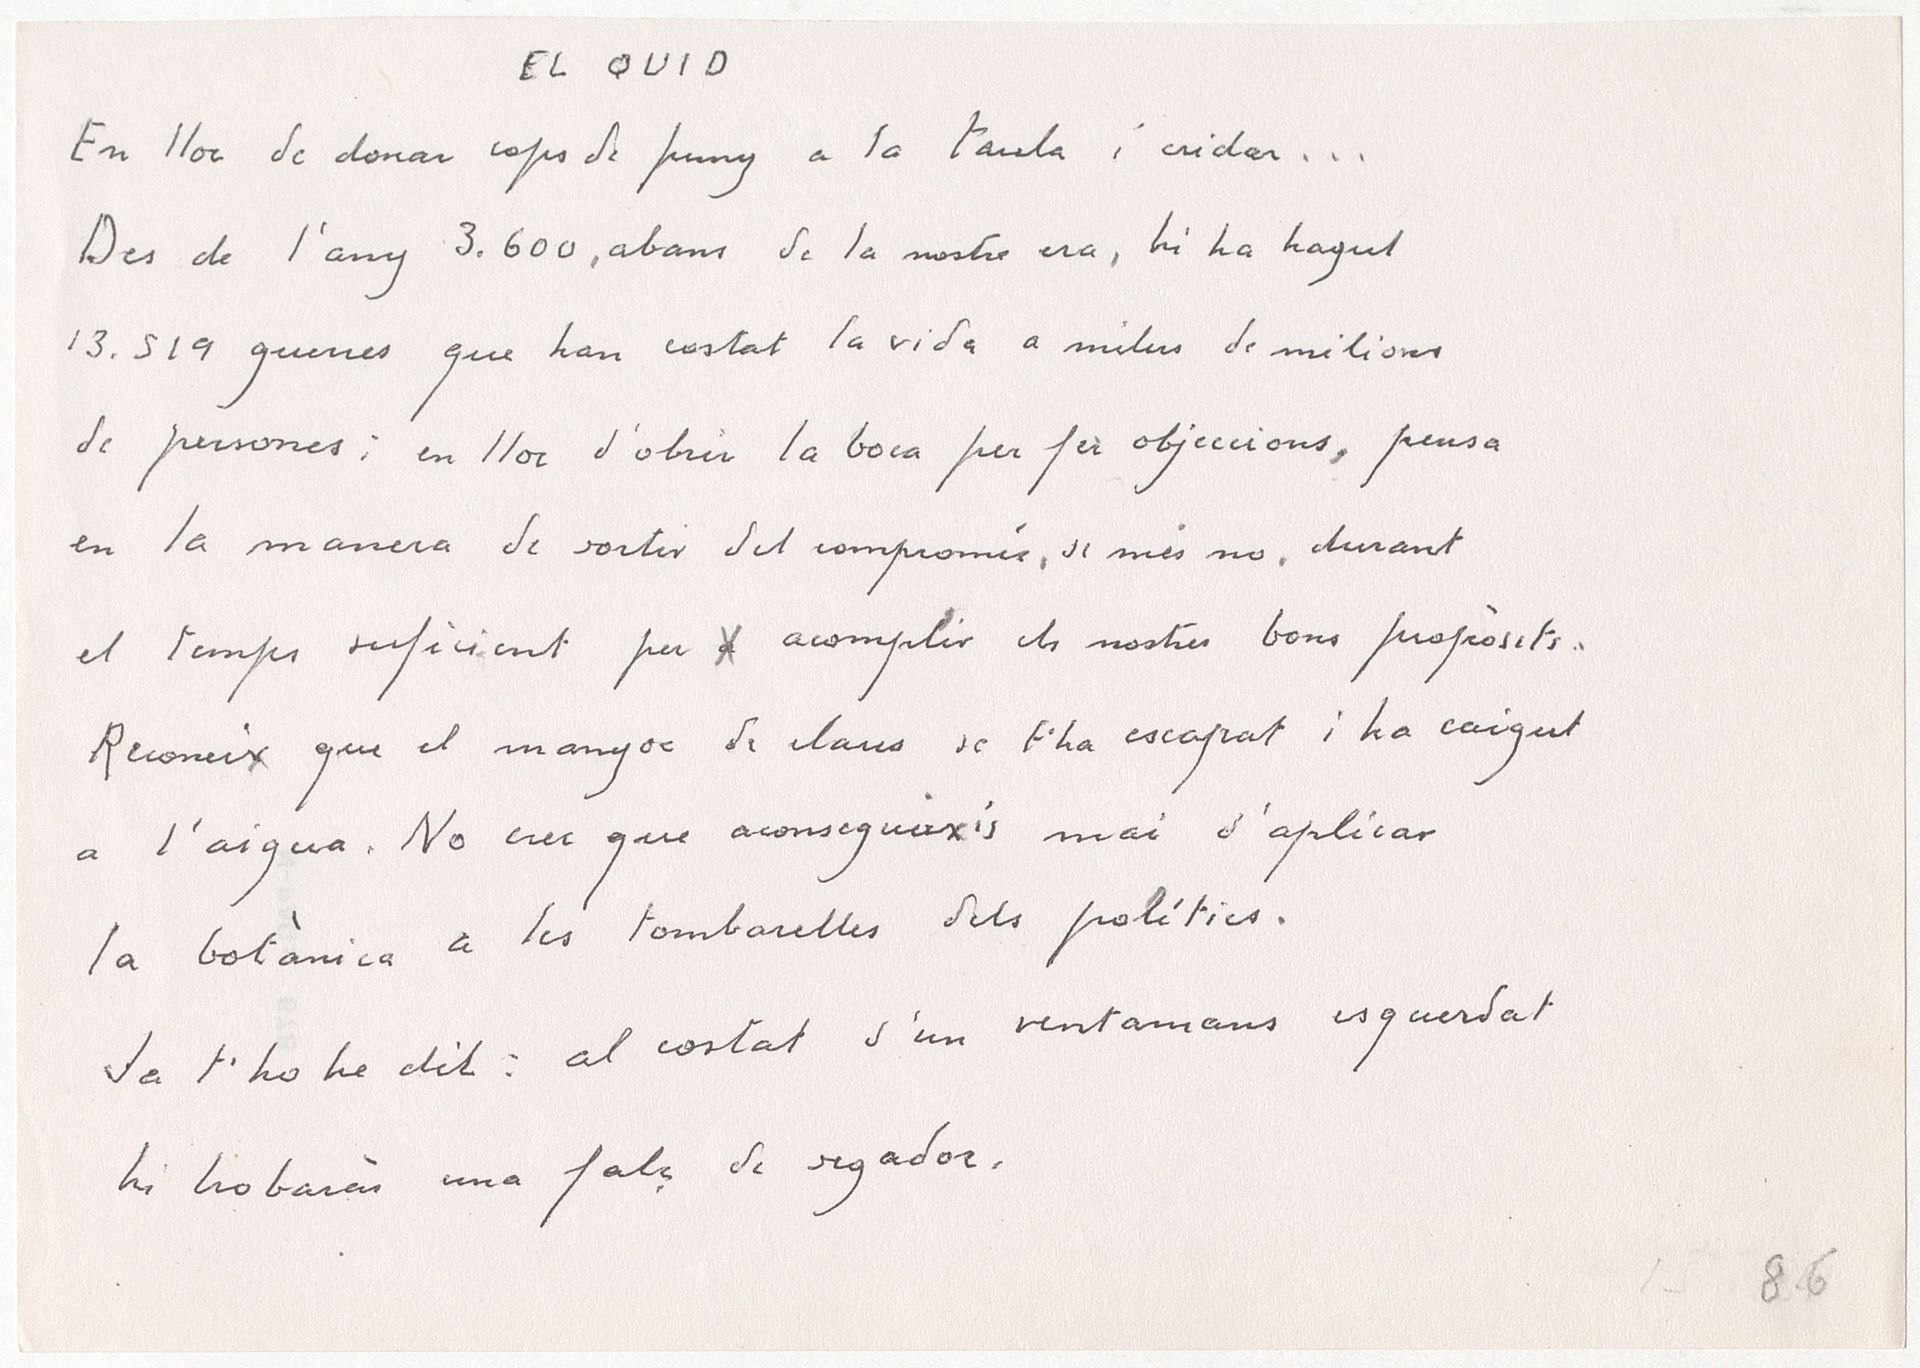 EL QUID
En lloc de donar cops de puny a la taula i cridar...
Des de l'any 3.600, abans de la nostre era, hi ha hagut
13.519 guerres que han costat la vida a milers de milions
de persones; en lloc d'obrir la boca per fer objeccions, pensa
en la manera de sortir del compromís, si més no, durant
el temps suficient per acomplir els nostres bons propòsits.
Reconeix que el manyoc de claus se t'ha escapat i ha caigut
a l'aigua. No crec que aconsegueixis mai d'aplicar
la botànica a les tombarelles dels polítics.
Ja t'ho he dit: al costat d'un ventamans esquerdat
hi trobaràs una falç de segador.
86